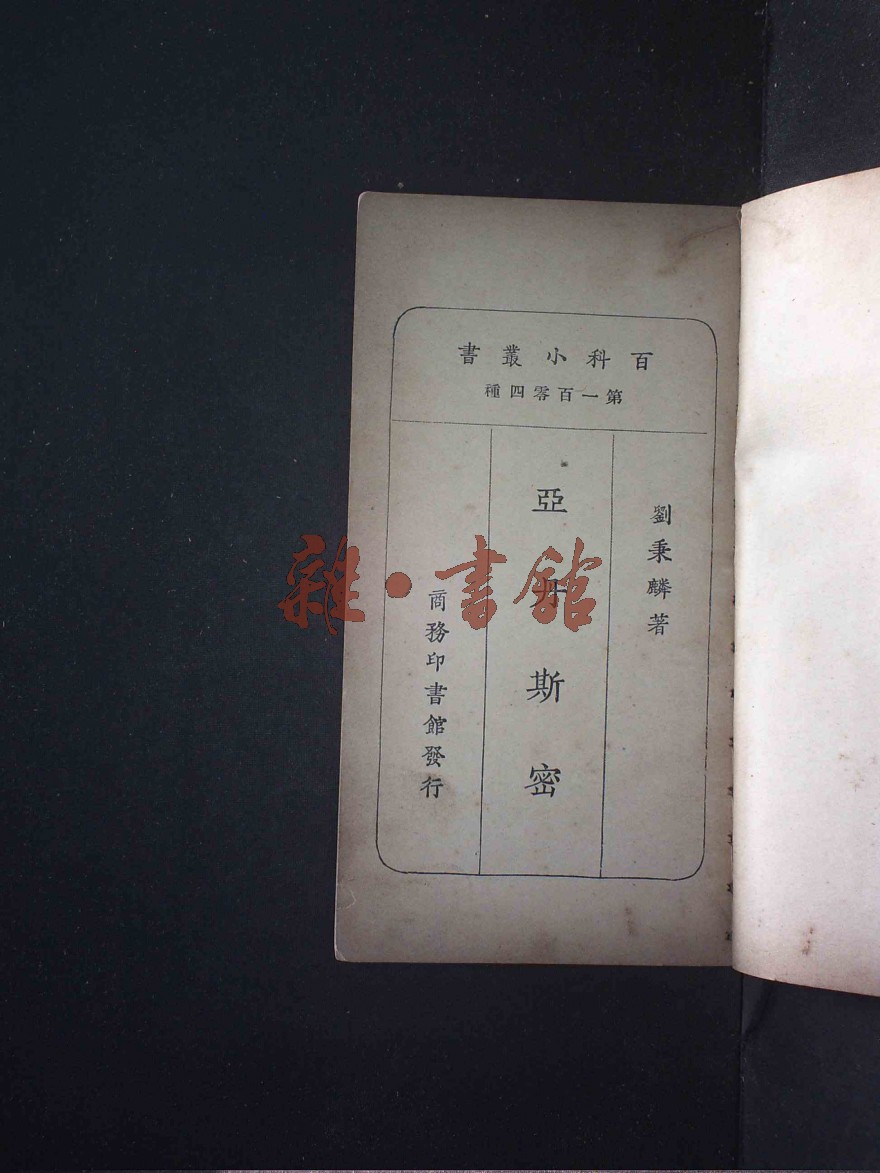 百科小叢書
第一百零四種
劉秉麟著
亞丹斯密
商務印書館發行
雜·書館